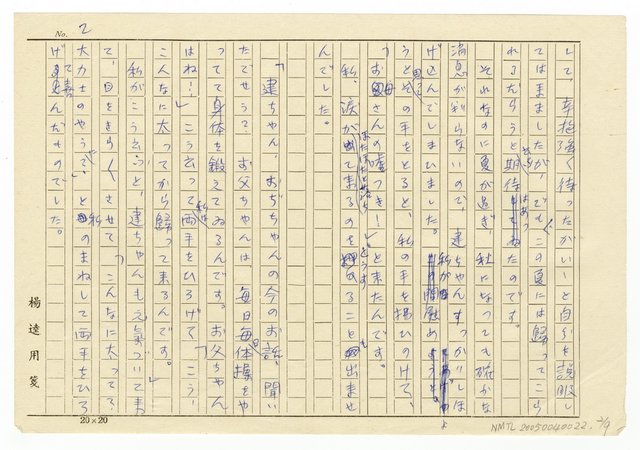 No. 2
して、辛抱強く待ったかい！と自分を説服し
てはましたが、でもこの夏には歸ってこら
れるだらうと期待はあつたのです。
それなのに夏が過ぎ、秋になっても確かな
消息が判らないので、建ちゃんすっかりしよ
げ込んでしまひました。私が
うとその手をとると、私の手を揚ひのけて、
「お母さんの嘘つき！」と来たんです。
私、涙がぽたぽたと落ち
て来るのをどうすることも出来ませ
んでした。
「建ちゃん、おぢちゃんの今のお話、聞い
たでせう？お父ちゃんは、毎日毎日体操をや
ってて身体を鍛えてゐるんです。お父ちゃん
はね！」こう云って私は両手をひろげて「こう！
こんなに太ってから歸って来るんです。」
私がこう云ふと、建ちゃんも元気づいて来
て、目をきらきらさせて「こんなに太って？
大力士のやうに？」と私のまねして両手をひろ
げて喜んだものでした。
楊逵用箋
20×20
NMTL 20050040022. 2/9